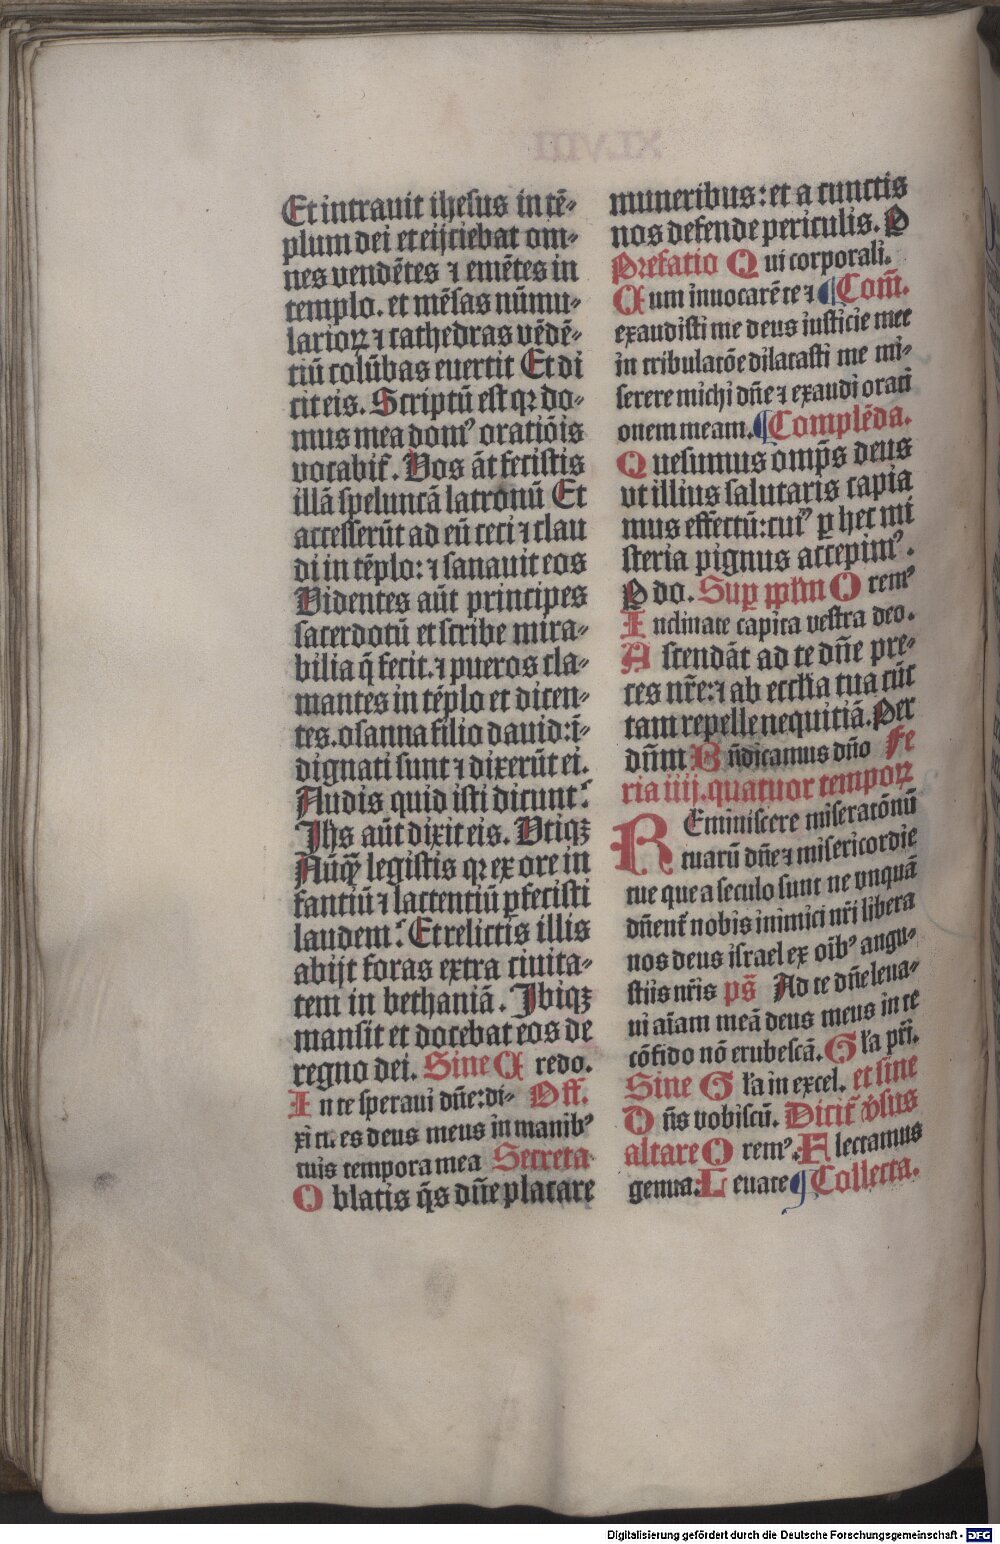 Et intrauit ihesus in tē-
plum dei et eijciebat om-
nes vendētes ⁊ emētes in
templo. et mēsas nūmu-
larioꝝ ⁊ cathedras vēdē-
tiū colūbas euertit Et di
cit eis. Scriptū est qꝛ do-
mus mea domꝰ oratiōis
vocabit̄. Vos āt fecistis
illā speluncā latronū Et
accesserūt ad eū ceci ⁊ clau
di in tēplo: ⁊ sanauit eos
Videntes aūt principes
sacerdotū et scribe mira-
bilia q̄ fecit. ⁊ pueros cla-
mantes in tēplo et dicen-
tes. osanna filio dauid: ī-
dignati sunt ⁊ dixerūt ei.
Audis quid isti dicunt?
Jhs aūt dixit eis. Vtiqꝫ
Nūqꝫ legistis qꝛ ex ore in
fantiū ⁊ lactentiū ꝑfecisti
laudem? Et relictis illis
abijt foras extra ciuita-
tem in bethaniā. Jbiqꝫ
mansit et docebat eos de
regno dei. Sine Credo.
In te speraui dn̄e: di- Off.
xi tu es deus meus in manibꝰ
tuis tempora mea Secreta
Oblatis q̄s dn̄e placare
muneribus: et a cunctis
nos defende periculis. P
Prefatio Qui corporali.
Cum inuocarē te ⁊ ¶ Com̄.
exaudisti me deus iusticie mee
in tribulatōe dilatasti me mi-
serere michi dn̄e ⁊ exaudi orati
onem meam. ¶ Complēda.
Quesumus omp̄s deus
vt illius salutaris capia
mus effectū: cuiꝰ ꝑ hec mi
steria pignus accepimꝰ.
P do. Suꝑ pplm̄ Oremꝰ
Inclinate capita vestra deo.
Ascendāt ad te dn̄e pre-
ces nr̄e: ⁊ ab ecclīa tua cūc
tam repelle nequitiā. Per
dn̄m Bn̄dicamus dn̄o Fe
ria iiij. quatuor tempoꝝ
Reminiscere miseratōnū
tuarū dn̄e ⁊ misericordie
tue que a seculo sunt ne vnquā
dn̄ent̄ nobis inimici nr̄i libera
nos deus israel ex oībꝰ angu-
stiis nr̄is ps̄ Ad te dn̄e leua-
ui aīam meā deus meus in te
cōfido nō erubescā. Gl̄a pr̄i.
Sine Gl̄a in excel. et sine
Dn̄s vobiscū. Dicit̄ v̄sus
altare Oremꝰ. Flectamus
genua: Leuate ¶ Collecta.
Digitalisierung gefördert durch die Deutsche Forschungsgemeinschaft - DFG